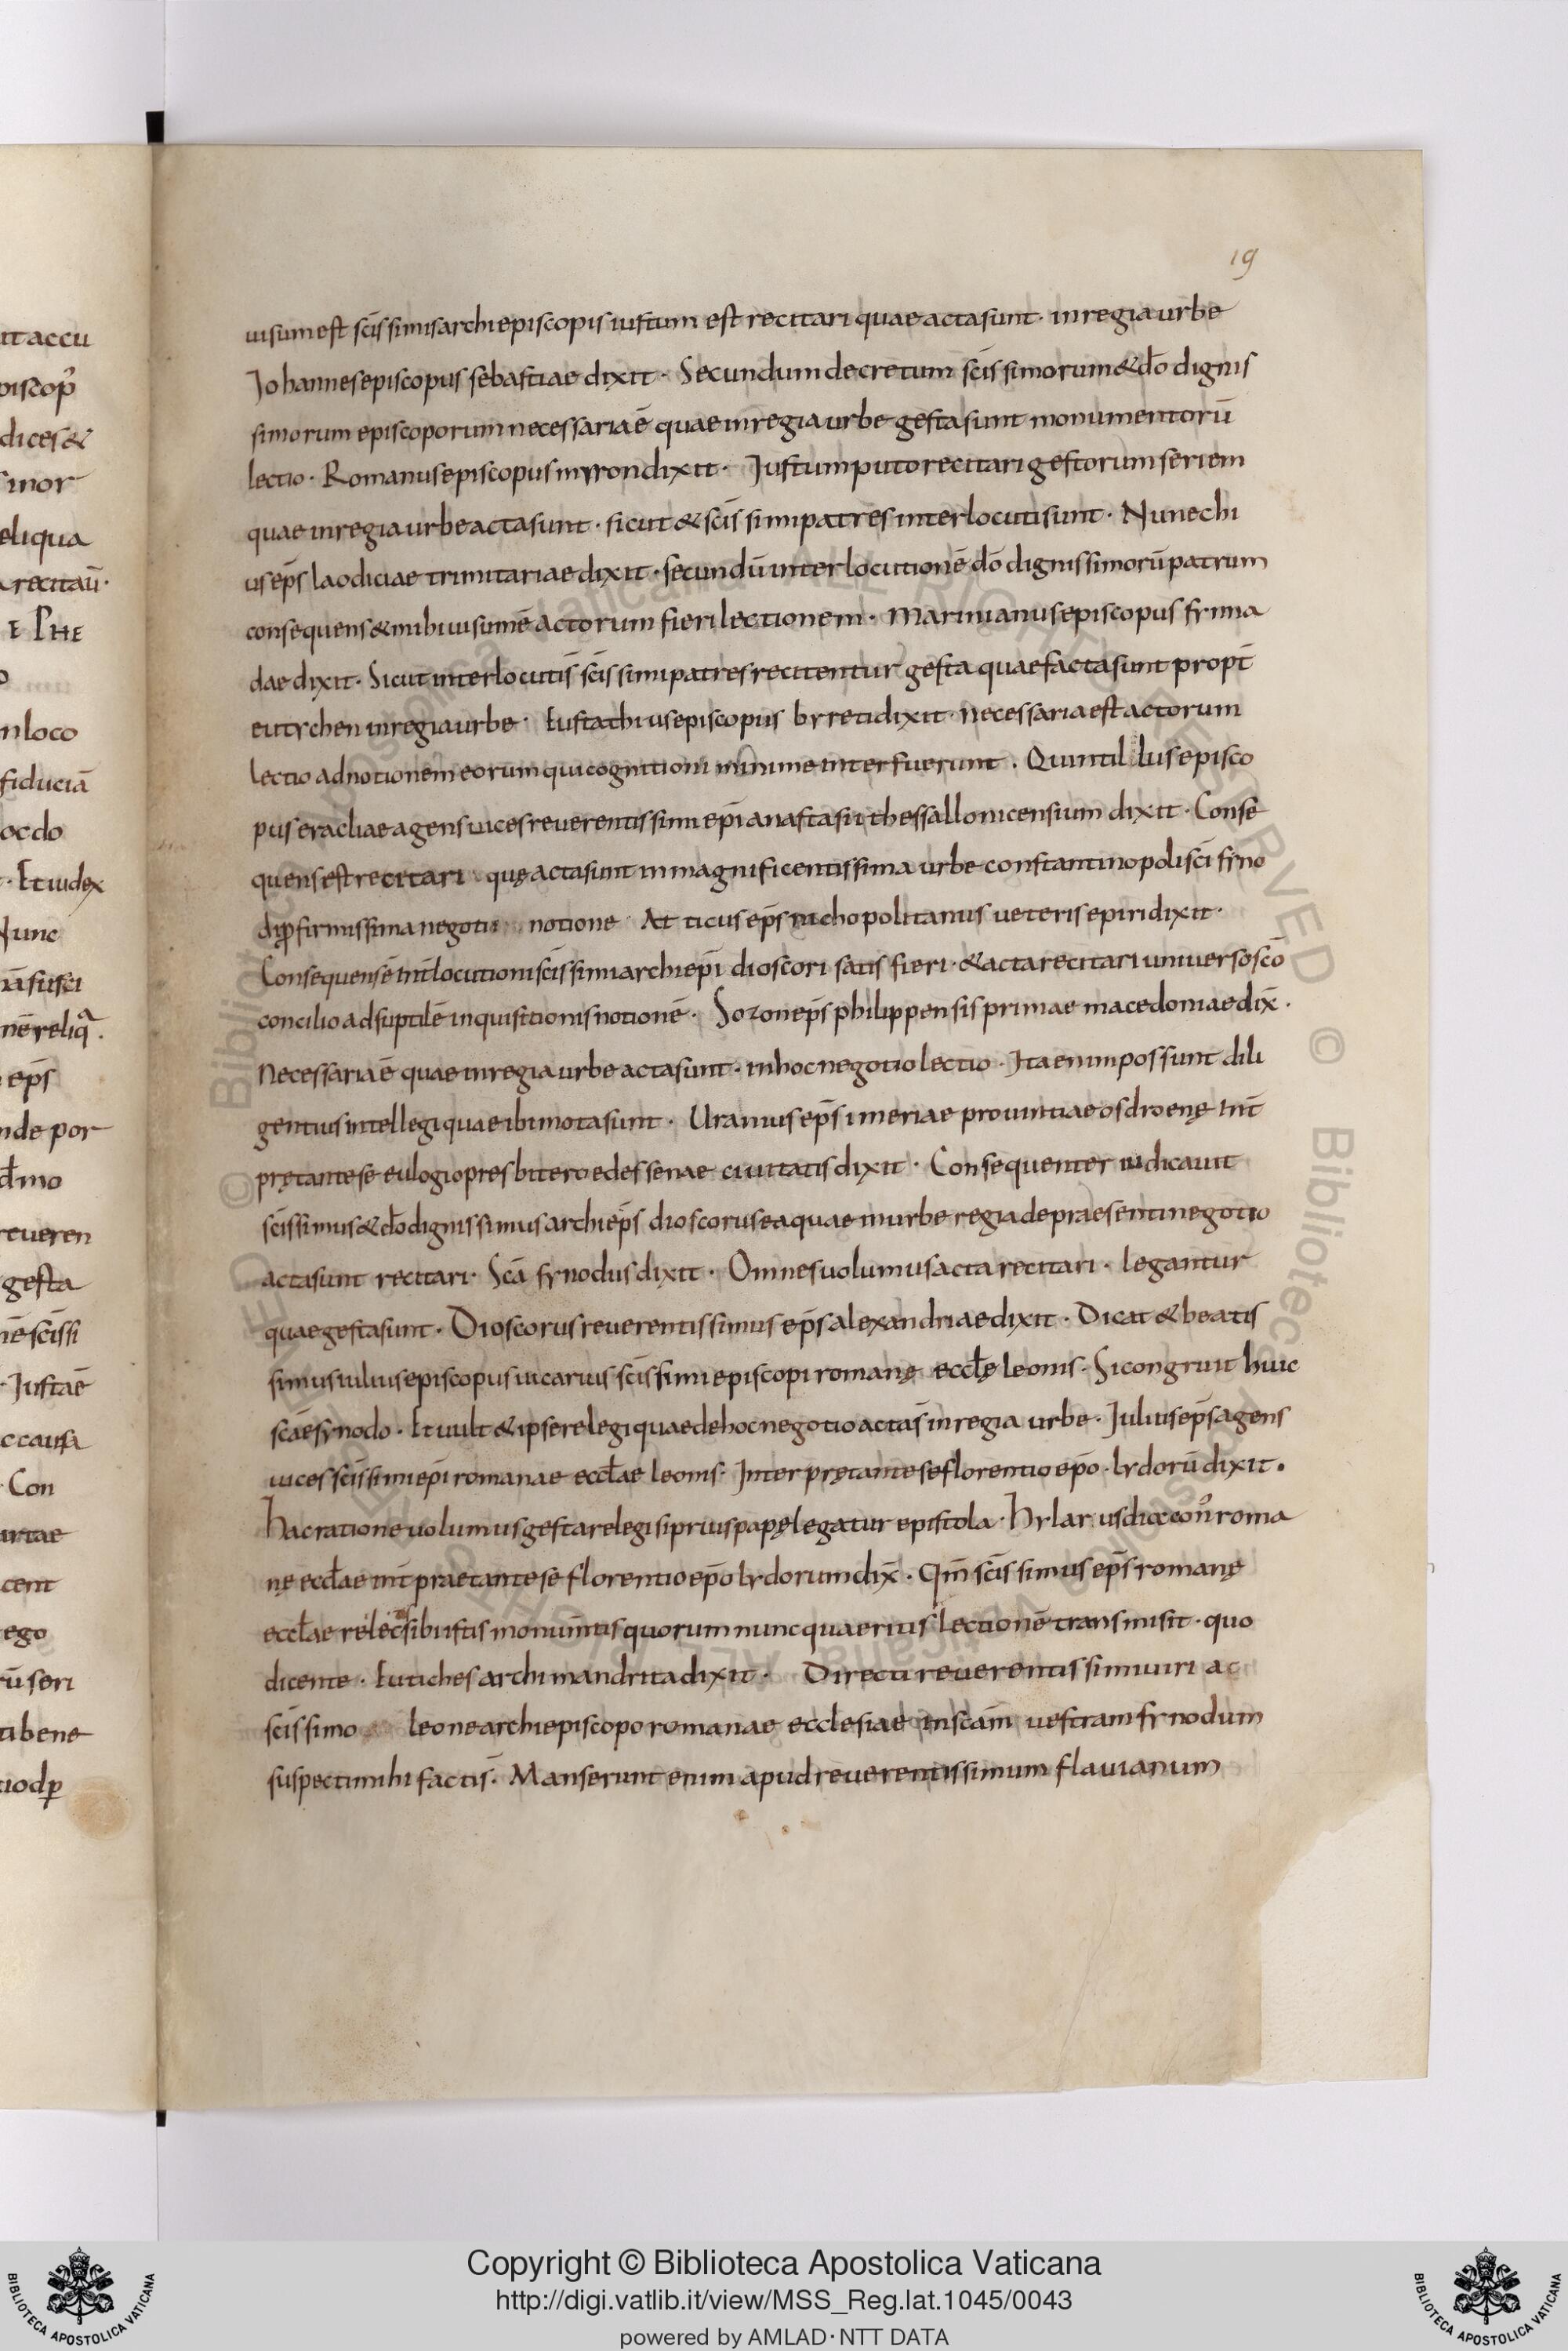 it accu
piscopˀ
dices &
sinor
eliqua
recitaū·
E PHE
o
nloco
fiduciā
oc do
· Et iudex
Nunc
nā susci
nē reliqa.
eps̄
nde por
dmo
reueren
gesta
nē scissi
· Iustaē
c causa
· Con
artae
cent
ego
rū seri
ti bene
tiodp
19
uisum est sc̄issimis archiepiscopis iustum est recitari quae acta sunt · in regia urbe
Iohannes episcopus sebastiae dixit · Secundum decretum sc̄issimorum & dō dignis
simorum episcoporum necessaria ē quae in regia urbe gesta sunt monumentorū
lectio · Romanus episcopus myron dixit · Iustum puto recitari gestorum seriem
quae in regia urbe acta sunt · sicut & sc̄issimi patres interlocuti sunt · Nunechi
us ep̄s laodiciae trimitariae dixit · secundū interlocutionē dō dignissimorū patrum
consequens & mihi uisum ē actorum fieri lectionem · Marinianus episcopus synna
dae dixit · Sicut interlocuti s̄ sc̄issimi patres recitentur gesta quae facta sunt propt̄
eutychen in regia urbe · Eustathius episcopus byreti dixit · necessaria est actorum
lectio ad notionem eorum qui cognitioni minime interfuerunt · Quintillus episco
pus eracliae agens uices reuerentissimi ep̄i anastasii thessallonicensium dixit · Conse
quens est recitari quę acta sunt in magnificentissima urbe constantinopoli sc̄i syno
di ꝓ firmissima negotii notione · Atticus ep̄s nichopolitanus ueteris epiri dixit ·
Consequens ē int̄locutioni sc̄issimi archiep̄i dioscori satis fieri · & acta recitari uniuerso sc̄o
concilio ad suptilē inquisitionis notionē · Sozon ep̄s philippensis primae macedoniae dix̄ ·
Necessaria ē quae in regia urbe acta sunt · in hoc negotio lectio · Ita enim possunt dili
gentius intellegi quae ibi mota sunt · Uranius ep̄s imeriae prouintiae osdroenę int̄
prętante se eulogio presbitero edessenae ciuitatis dixit · Consequenter iudicauit
sc̄issimus & dō dignissimus archiep̄s dioscorus ea quae in urbe regia de praesenti negotio
acta sunt recitari · Sc̄a synodus dixit · Omnes uolumus acta recitari · legantur
quae gesta sunt · Dioscorus reuerentissimus ep̄s alexandriae dixit · Dicat & beatis
simus iulius episcopus uicarius sc̄issimi episcopi romanę eccłę leonis · Si congruit huic
sc̄ae synodo · Et uult & ipse relegi quae de hoc negotio acta s̄ in regia urbe · Iulius ep̄s agens
uices sc̄issimi ep̄i romanae eccłae leonis · Interprętante se florentio ep̄o · lydorū dixit ·
Hac ratione uolumus gesta relegi si prius papę legatur epistola · Hylarus diacon̄ roma
nę eccłae int̄praetante se florentio ep̄o lydorum dix̄ · Qm̄ sc̄issimus ep̄s romanę
eccłae relectis sibi istis monum̄tis quorum nunc quaeritis lectionē transmisit · quo
dicente · Eutiches archimandrita dixit · Directi reuerentissimi uiri a
sc̄issimo leone archiepiscopo romanae ecclesiae in sc̄am uestram synodum
suspecti mihi facti s̄ · Manserunt enim apud reuerentissimum flauianum
Copyright © Biblioteca Apostolica Vaticana
http://digi.vatlib.it/view/MSS_Reg.lat.1045/0043
powered by AMLAD·NTT DATA
BIBLIOTECA APOSTOLICA VATICANA
BIBLIOTECA APOSTOLICA VATICANA